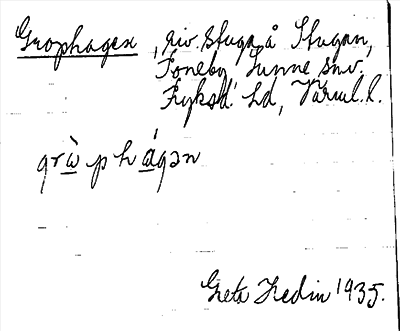 Grophagen, riv. stuga å Stugan,
Toneby, Sunne snv.
Fryksd. hd, Värml. l.
grὼphágən
Greta Hedin 1935.